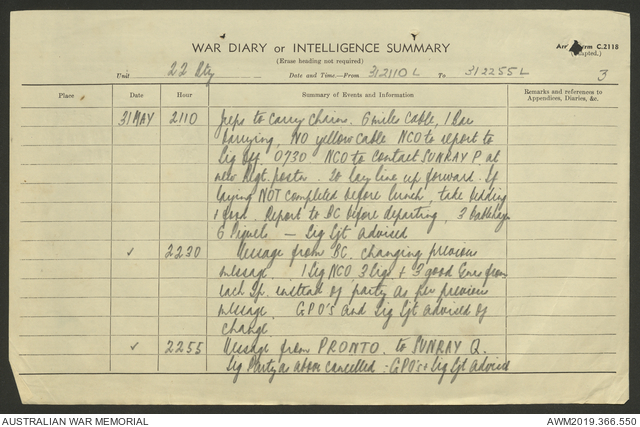 WAR DIARY or INTELLIGENCE SUMMARY
(Erase heading not required)
Form C.2118
Unit 22 Bty Date and Time—From 312110L To 312255L
3
Place Date Hour Summary of Events and Information Remarks and references to
Appendices, Diaries, &c.
31 MAY 2110 Jeeps to carry chains. 6 miles cable, 1 Bar
carrying, NO yellow cable NCO to report to
Sig Off. 0730. NCO to contact SUNRAY P. at
new Regt. To lay line up forward. If
laying NOT completed before lunch, take bedding
Report to BC before departing, 3
6 — Sig Sjt advised
✓ 2230 Message from BC. changing previous
message. 1 Sig NCO 3 Sigs + 3 good from
each Tp. instead of party as per previous
message. GPO's and Sig Sjt advised of
change
✓ 2255 Message from PRONTO. to SUNRAY Q.
Sig Party as above cancelled - GPO's + Sig Sjt Advised
AUSTRALIAN WAR MEMORIAL AWM2019.366.550